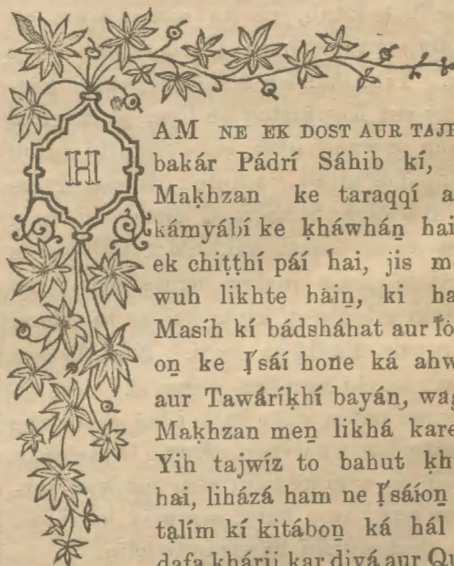 HAM NE EK DOST AUR
bakár Pádrí Sáhib kí,
Maḵhzan ke taraqqí
kámyábí ke ḵháwháṉ
ek chiṭṭhí páí hai, jis
wuh likhte haiṉ, ki
Masíh kí bádsháhat aur
oṉ ke I̱sáí hone ká
aur Tawáríḵhí bayáṉ,
Maḵhzan meṉ likhá
Yih tajwíz to bahut
hai, liházá ham ne I̱sáíoṉ
ta̱lím kí kitáboṉ ká hál
dafa ḵhárij kar diyá aur